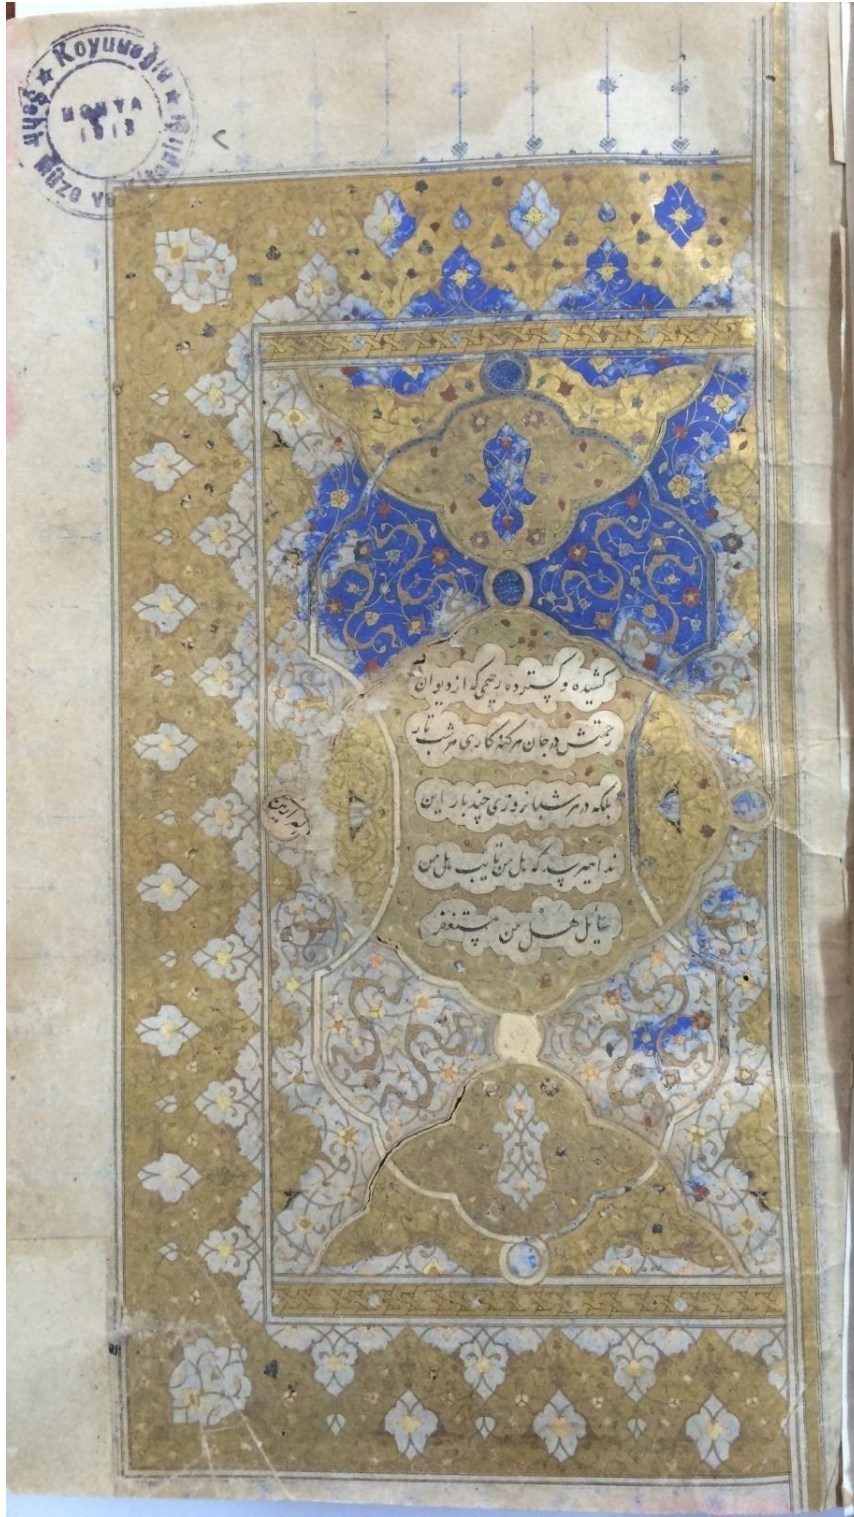 ★ Koyunoğlu ★
KONYA
1913
کشیده و گسترده رحیمی که از دیوان
رحمتش در جان هر گنه کاری هر شب تار
بلکه در هر شبانروزی چند بار این
ندا میرسد که هل من تایب هل من
سایل هل من مستغفر